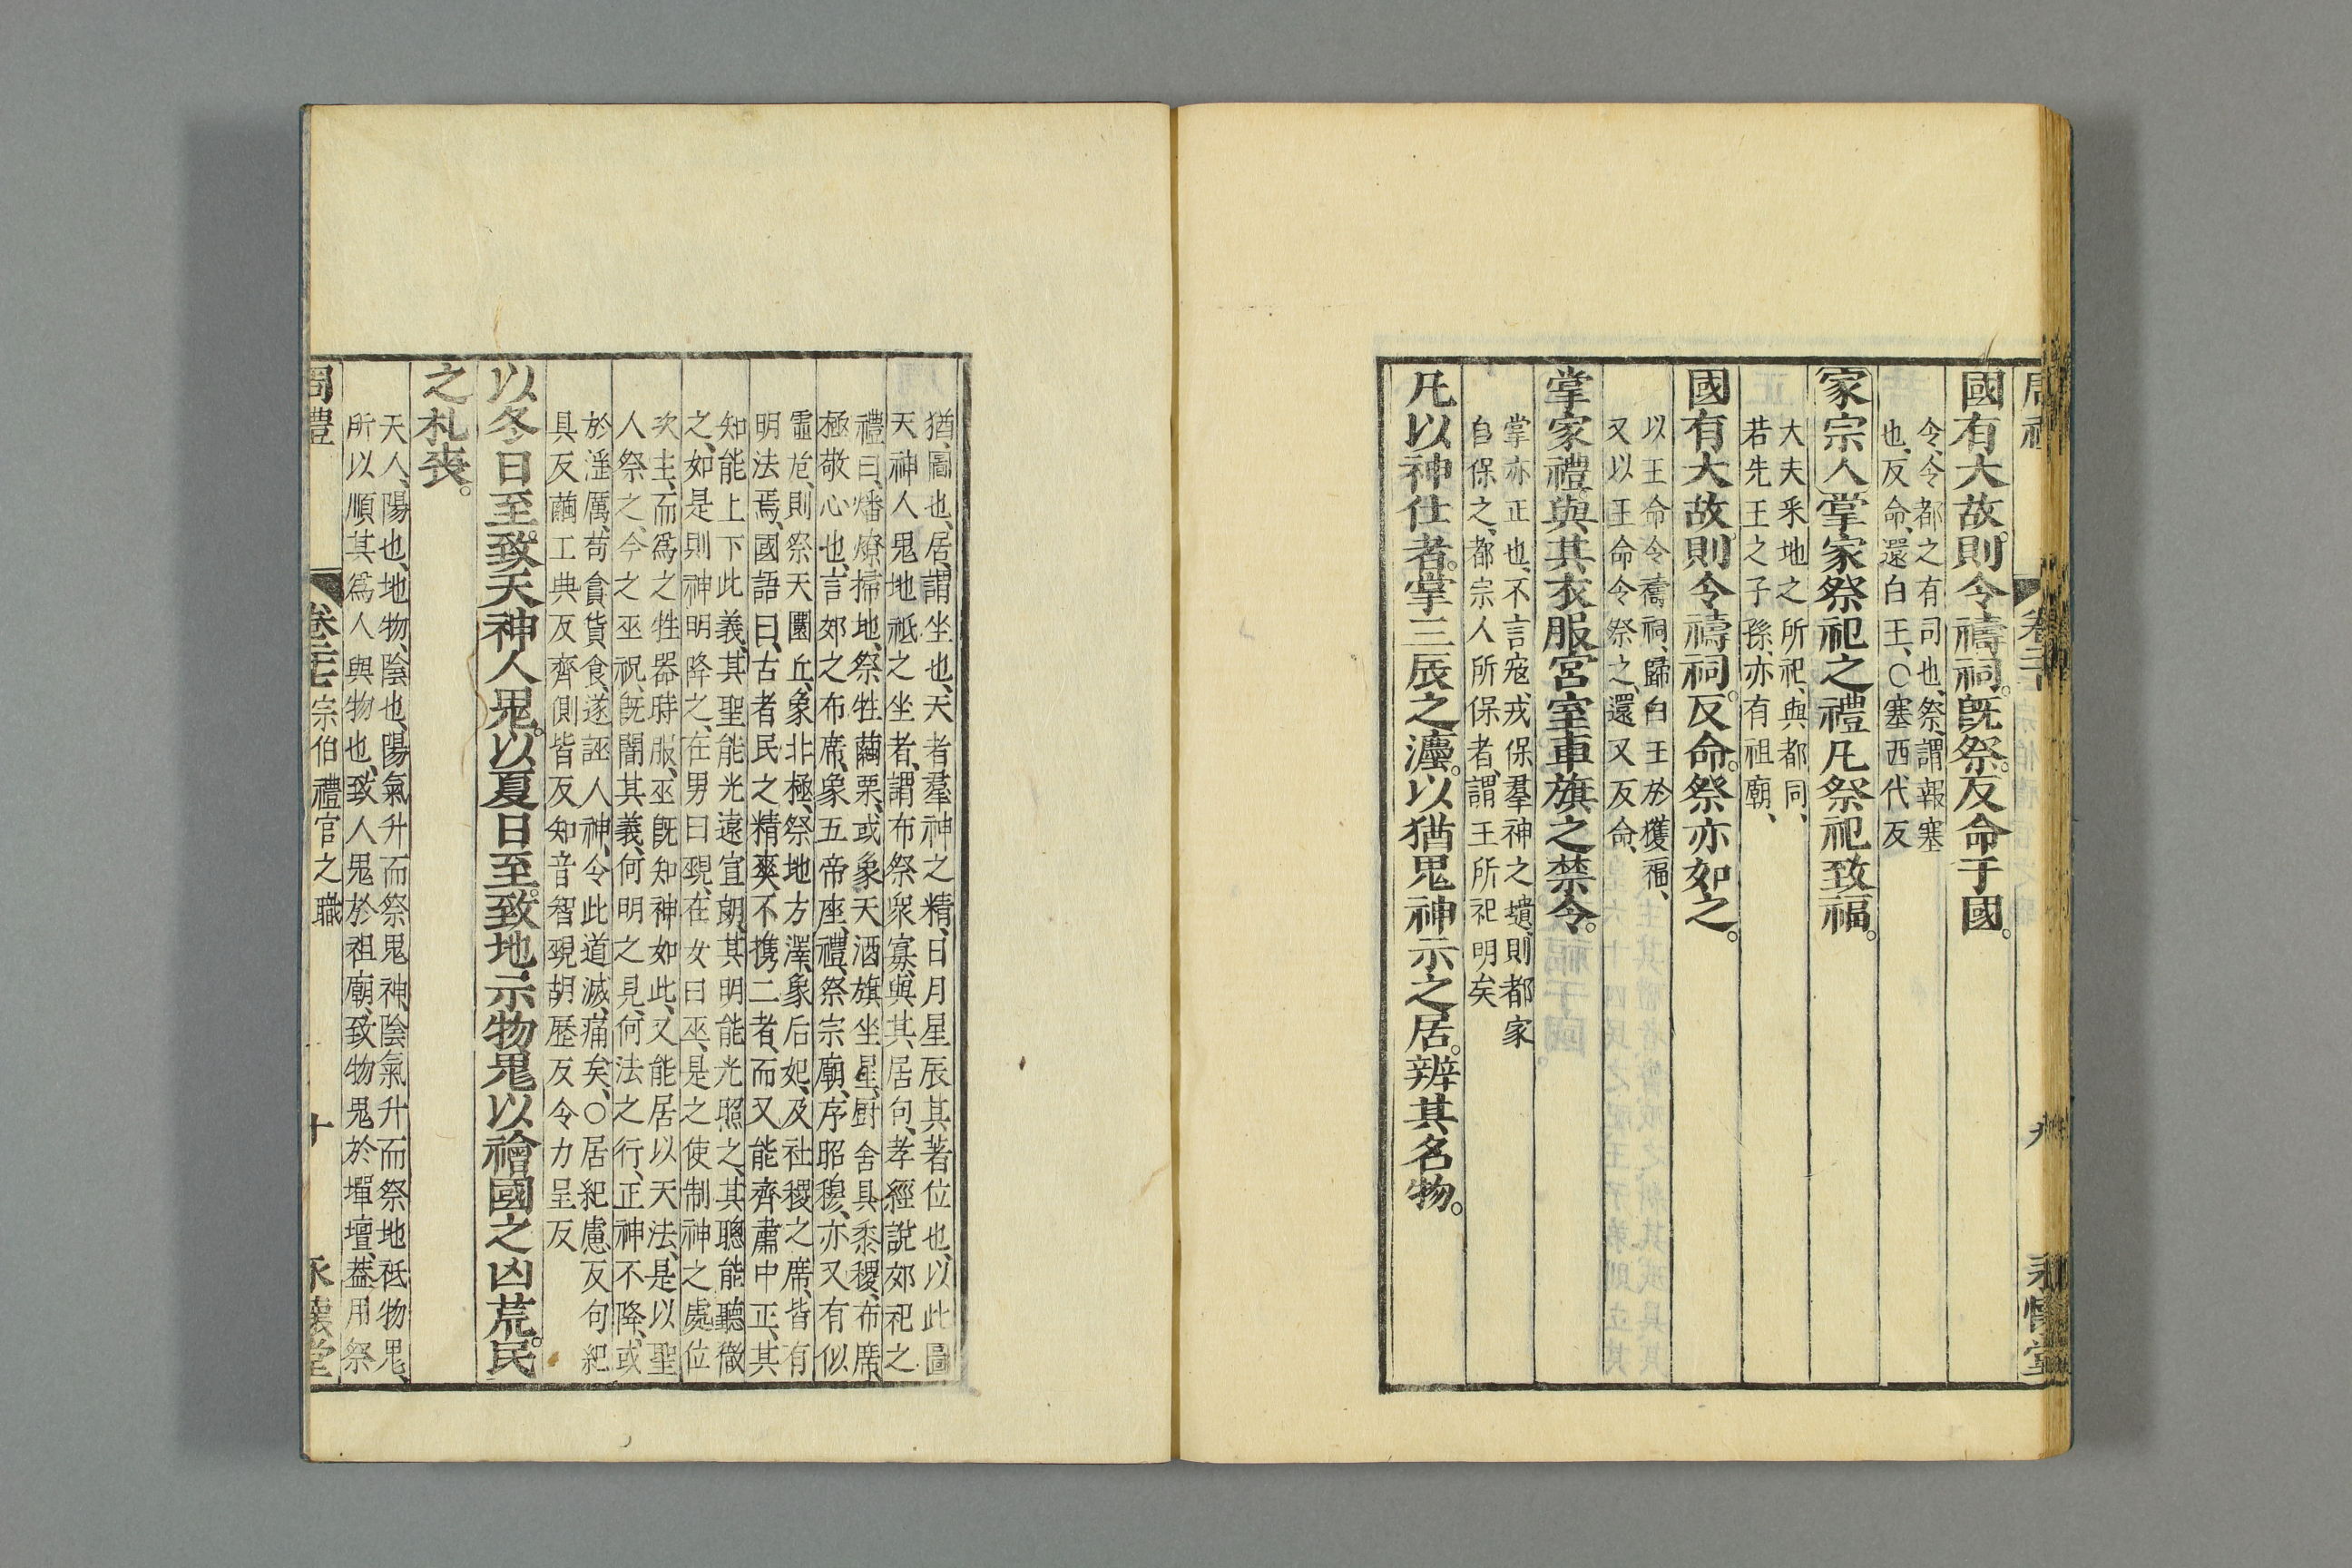 國有大故。則令禱祠。既祭。反命于國。
令、令都之有司也、祭、謂報塞
也、反命、還白王、○塞西代反
家宗人掌家祭祀之禮凡祭祀致福。
大夫采地之所祀、與都同、
若先王之子孫、亦有祖廟、
國有大故。則令禱祠。反命。祭亦如之。
以王命令禱祠、歸白王於獲福、
又以王命令祭之、還又反命、
掌家禮。與其衣服宮室車旗之禁令。
掌亦正也、不言寇戎保羣神之壝、則都家
自保之、都宗人所保者、謂王所祀明矣
凡以神仕者。掌三辰之灋。以猶鬼神示之居。辨其名物。
猶、圖也、居、謂坐也、天者羣神之精、日月星辰其著位也、以此圖
天神人鬼地祇之坐者、謂布祭衆寡、與其居句、孝經說郊祀之
禮曰、燔燎掃地、祭牲繭栗、或象天酒旗坐星、廚舍具黍稷、布席、
極敬心也、言郊之布席、象五帝座、禮、祭宗廟、序昭穆、亦又有似
虛危、則祭天圜丘、象北極、祭地方澤、象后妃、及社稷之席、皆有
明法焉、國語曰、古者民之精爽不携二者、而又能齊肅中正、其
知能上下此義、其聖能光遠宣朗、其明能光照之、其聰能聽徹
之、如是則神明降之、在男曰覡、在女曰巫、是之使制神之處位
次主、而爲之牲器時服、巫既知神如此、又能居以天法、是以聖
人祭之、今之巫祝、既闇其義、何明之見、何法之行、正神不降、或
於淫厲、苟貪貨食、遂誣人神、令此道滅、痛矣、○居紀慮反句紀
具反繭工典反齊側皆反知音智覡胡歷反令力呈反
以冬日至。致天神人鬼。以夏日至。致地示物鬽。以禬國之凶荒。民
之札喪。
天人、陽也、地物、陰也、陽氣升而祭鬼神、陰氣升而祭地祇物鬽、
所以順其爲人與物也、致人鬼於祖廟、致物鬽於墠壇、葢用祭
周禮 卷二十七 宗伯禮官之職 十 永懷堂